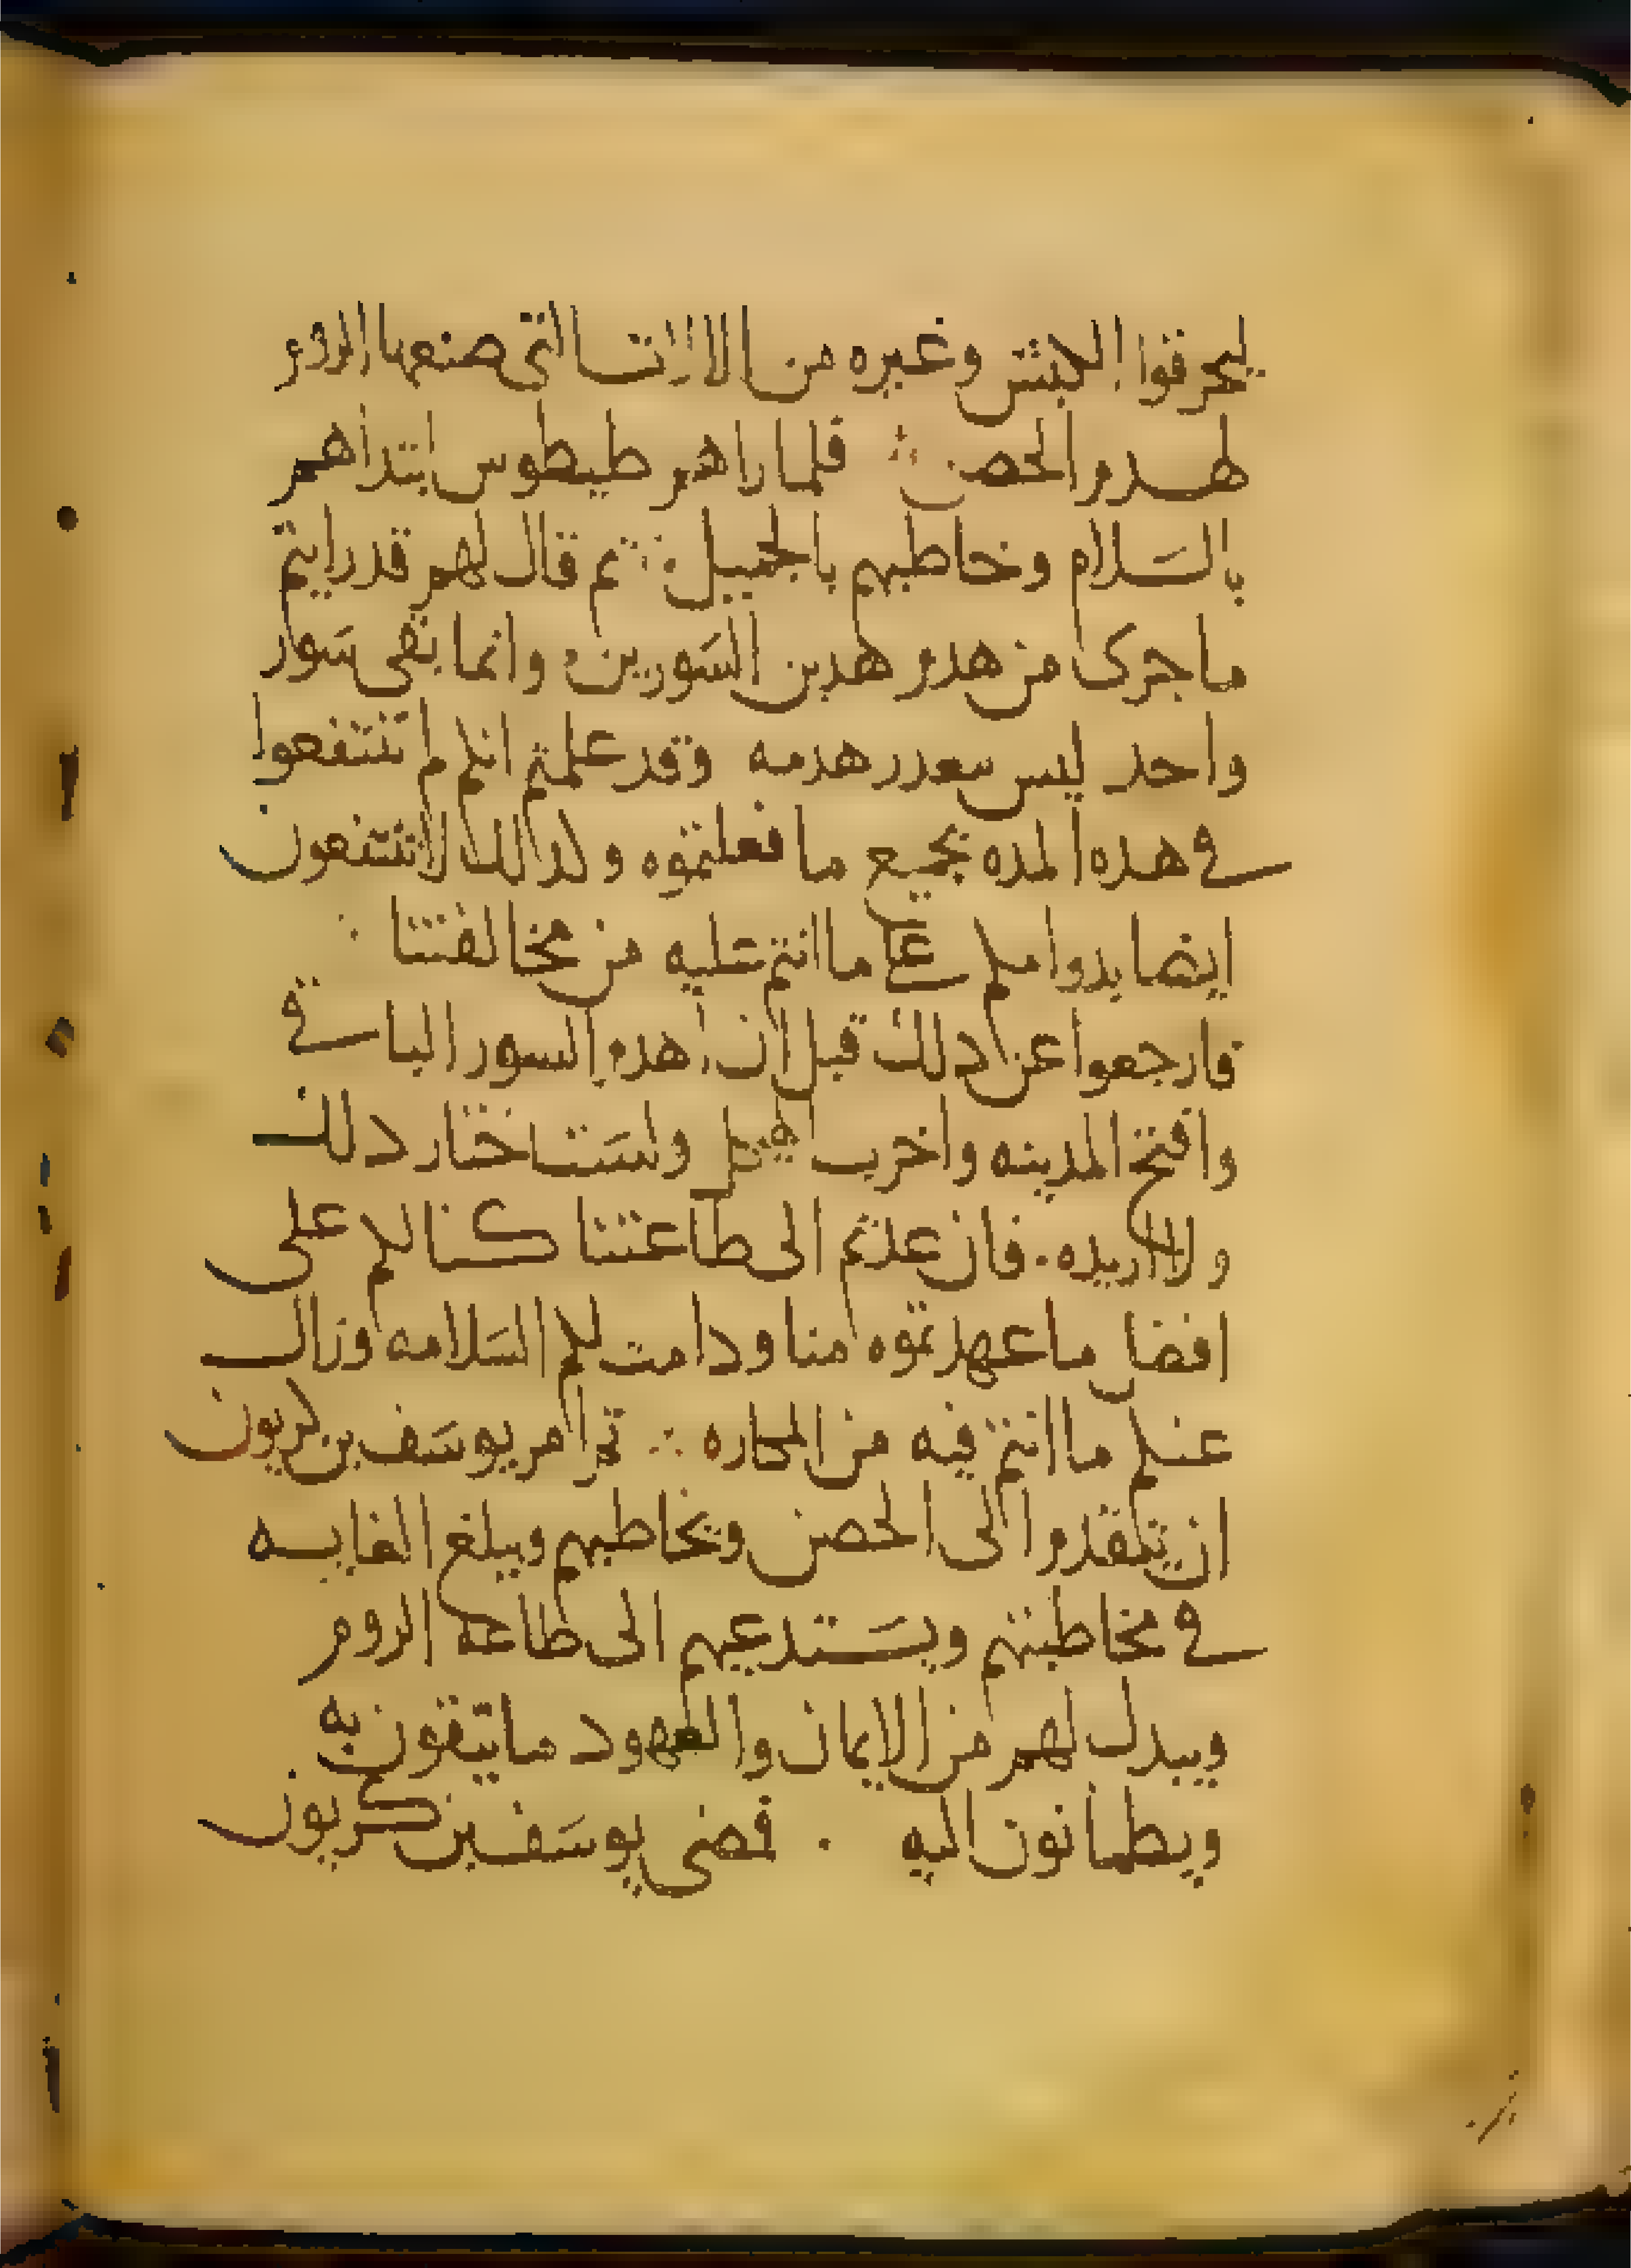 ليحرقوا الكبش وغيره من الالات التى صنعها الروم
لهدم الحصن ∴ فلما راهم طيطوس ابتداهم
بالسلام وخاطبهم بالجميل ∴ ثم قال لهم قد رايتم
ما جرى من هدم هدين السورين وانما بقى سور
واحد ليس يتعدر هدمه وقد علمتم انكم لم تنتفعوا
في هده المده بجميع ما فعلتموه ولدالك لا تنتفعون
ايضا بدوامكم على ما انتم عليه من مخالفتنا
فارجعوا عن دلك قبل ان اهدم السور الباقي
وافتح المدينه واخرب الهيكل ولست اختار دلك
ولا اريده. فان عدتم الى طاعتنا كنا لكم على
افضل ما عهدتموه منا ودامت لكم السلامه وزال
عنكم ما انتم فيه من المكاره ∴ ثم امر يوسف بن كريون
ان يتقدم الى الحصن ويخاطبهم ويبلغ الغايه
في مخاطبتهم ويستدعيهم الى طاعة الروم
ويبدل لهم من الايمان والعهود ما يثقون به
ويطمانون اليه . فمضى يوسف بن كريون